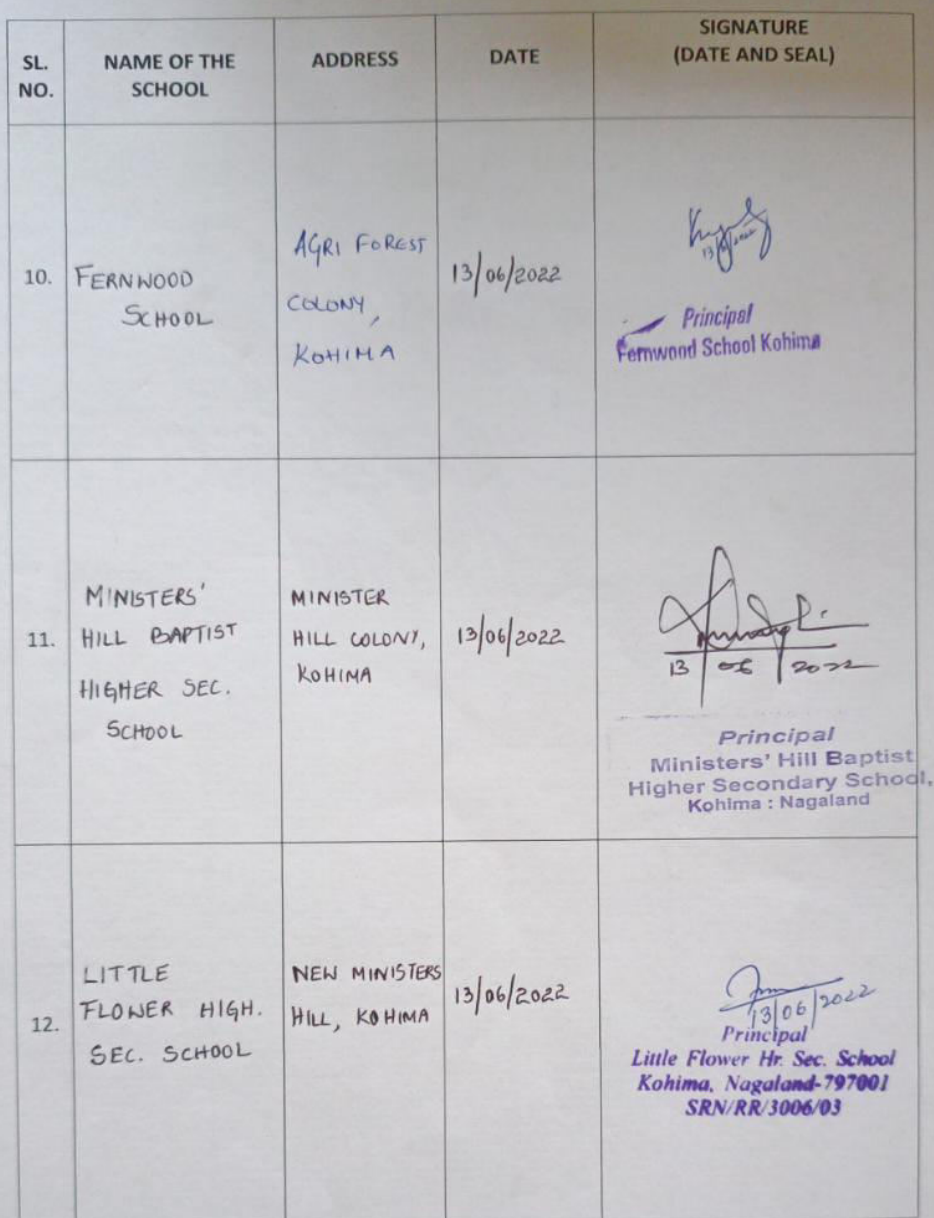 SL. NO.
NAME OF THE SCHOOL
ADDRESS
DATE
SIGNATURE (DATE AND SEAL)
10.
FERNWOOD
SCHOOL
AGRI FOREST
COLONY,
KOHIMA
13/06/2022
13/6/2022
Principal
Fernwood School Kohima
11.
MINISTERS'
HILL BAPTIST
HIGHER SEC.
SCHOOL
MINISTER
HILL COLONY,
KOHIMA
13/06/2022
13/06/2022
Principal
Ministers' Hill Baptist
Higher Secondary School,
Kohima : Nagaland
12.
LITTLE
FLOWER HIGH.
SEC. SCHOOL
NEW MINISTERS
HILL, KOHIMA
13/06/2022
13/06/2022
Principal
Little Flower Hr. Sec. School
Kohima, Nagaland-797001
SRN/RR/3006/03